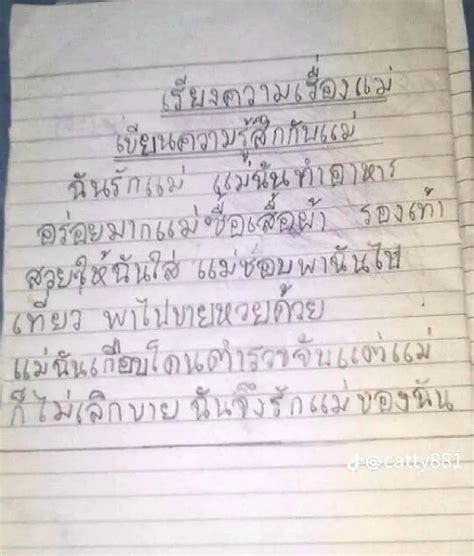 เรียงความเรื่องแม่
เขียนความรู้สึกกับแม่
ฉันรักแม่ แม่ฉันทำอาหาร
อร่อยมากแม่ซื้อเสื้อผ้า รองเท้า
สวยให้ฉันใส่ แม่ชอบพาฉันไป
เที่ยว พาไปขายหวยด้วย
แม่ฉันเกือบโดนตำรวจจับแต่แม่
ก็ไม่เลิกขาย ฉันจึงรักแม่ของฉัน
@catty881